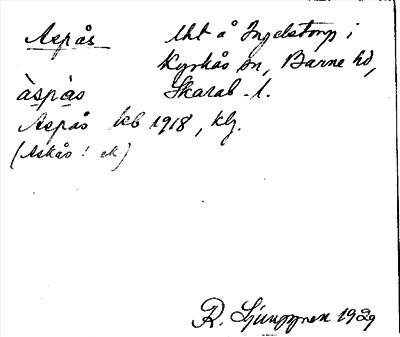 Aspås lht å Ingelstorp i
Kyrkås sn, Barne hd,
àspàs Skarab. l.
Aspås kb 1918, klj.
(Askås! ek)
R. Ljunggren 1929